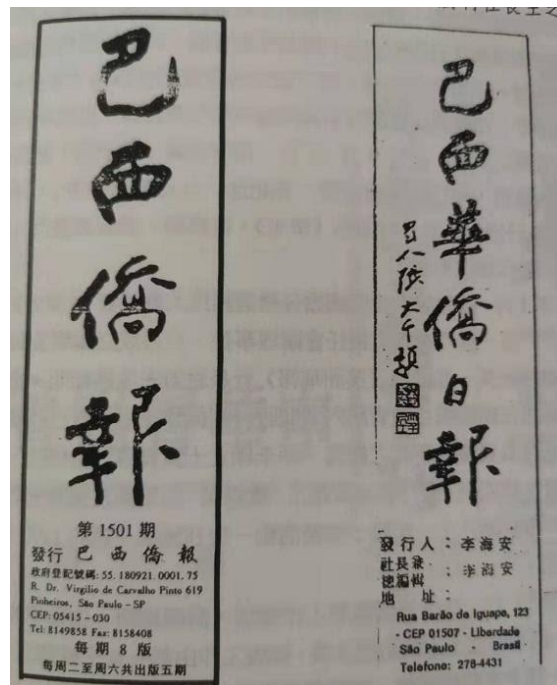 巴西僑報
第 1501 期
發行 巴西僑報
政府登記號碼: 55. 180921. 0001. 75
R. Dr. Virgilio de Carvalho Pinto 619
Pinheiros, São Paulo – SP
CEP: 05415 – 030
Tel: 8149858 Fax: 8158408
每期 8 版
每周二至周六共出版五期
巴西華僑日報
發行人：李海安
社長兼
總編輯 ：李海安
地 址：
Rua Barão de Iguape, 123
- CEP 01507 - Liberdade
São Paulo - Brasil
Telefone: 278-4431